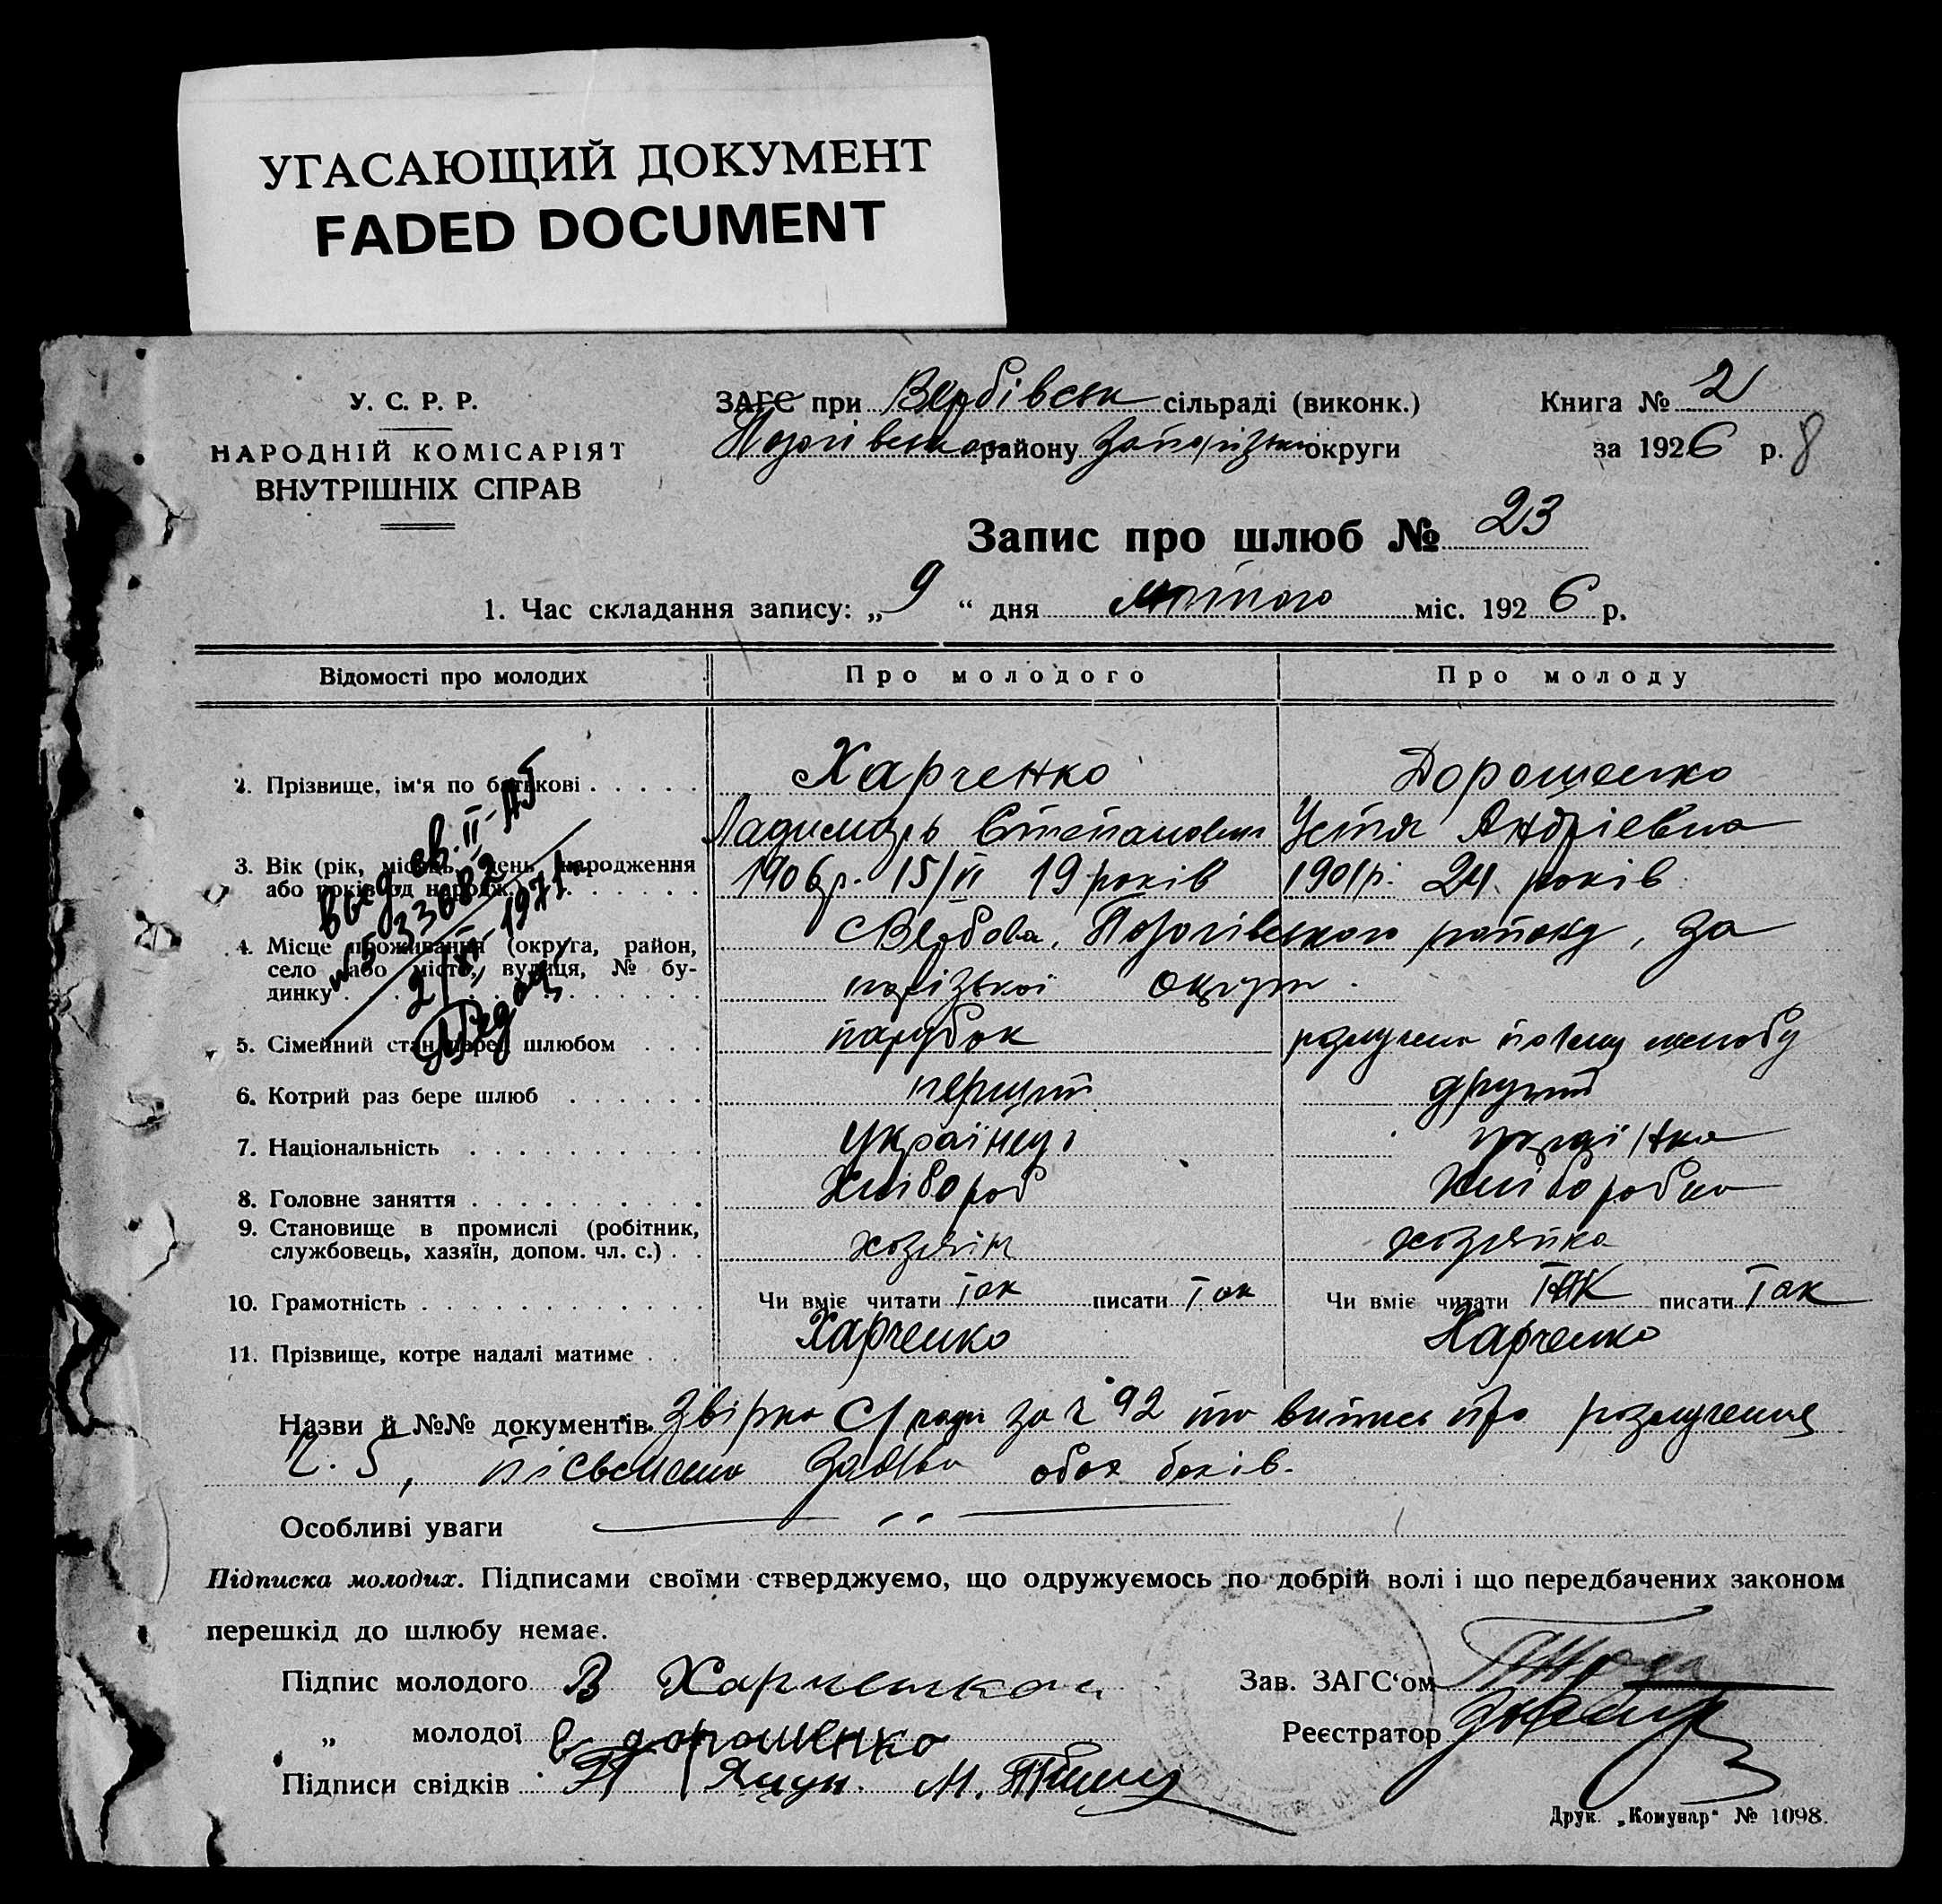 УГАСАЮЩИЙ ДОКУМЕНТ
FADED DOCUMENT
У. С. Р. Р.
НАРОДНІЙ КОМІСАРІЯТ
ВНУТРІШНІХ СПРАВ
ЗАГС при Вербівськ сільраді (виконк.)
району округи
Книга № 2
за 1926 р. 8
Запис про шлюб № 23
1. Час складання запису: „ 9 “ дня лютого міс. 1926 р.
Відомості про молодих
Про молодого
Про молоду
2. Прізвище, ім'я по батькові
Харченко
Дорошенко
Ладимиръ Степанович
Устя Андріевна
3. Вік (рік, місяць, день народження
або років од народж.)
1906р. 15/VI 19 років
1901р. 24 років
4. Місце проживання (округа, район,
село або місто, вулиця, № бу-
динку
с Вербова, Пологівського району, За
порізької округи
5. Сімейний стан перед шлюбом
парубок
розлучена шлюбу
6. Котрий раз бере шлюб
перший
другий
7. Національність
українець
українка
8. Головне заняття
Хлібороб
Хліборобка
9. Становище в промислі (робітник,
службовець, хазяїн, допом. чл. с.)
хозяїн
хозяйка
10. Грамотність
Чи вміє читати Так писати Так
Чи вміє читати Так писати Так
11. Прізвище, котре надалі матиме
Харченко
Харченко
Выд. св. II-АП
33082
1971
Назви й №№ документів. Звірка С/ради за ч 92 та витяг про розлучення
ч. 5, пісьмена заява обох боків.
Особливі уваги
Підписка молодих. Підписами своїми стверджуємо, що одружуємось по добрій волі і що передбачених законом
перешкід до шлюбу немає.
Підпис молодого В Харченко
„ молодої дорошенко
Підписи свідків
Зав. ЗАГС'ом
Реєстратор
Друк. „Комунар“ № 1098.